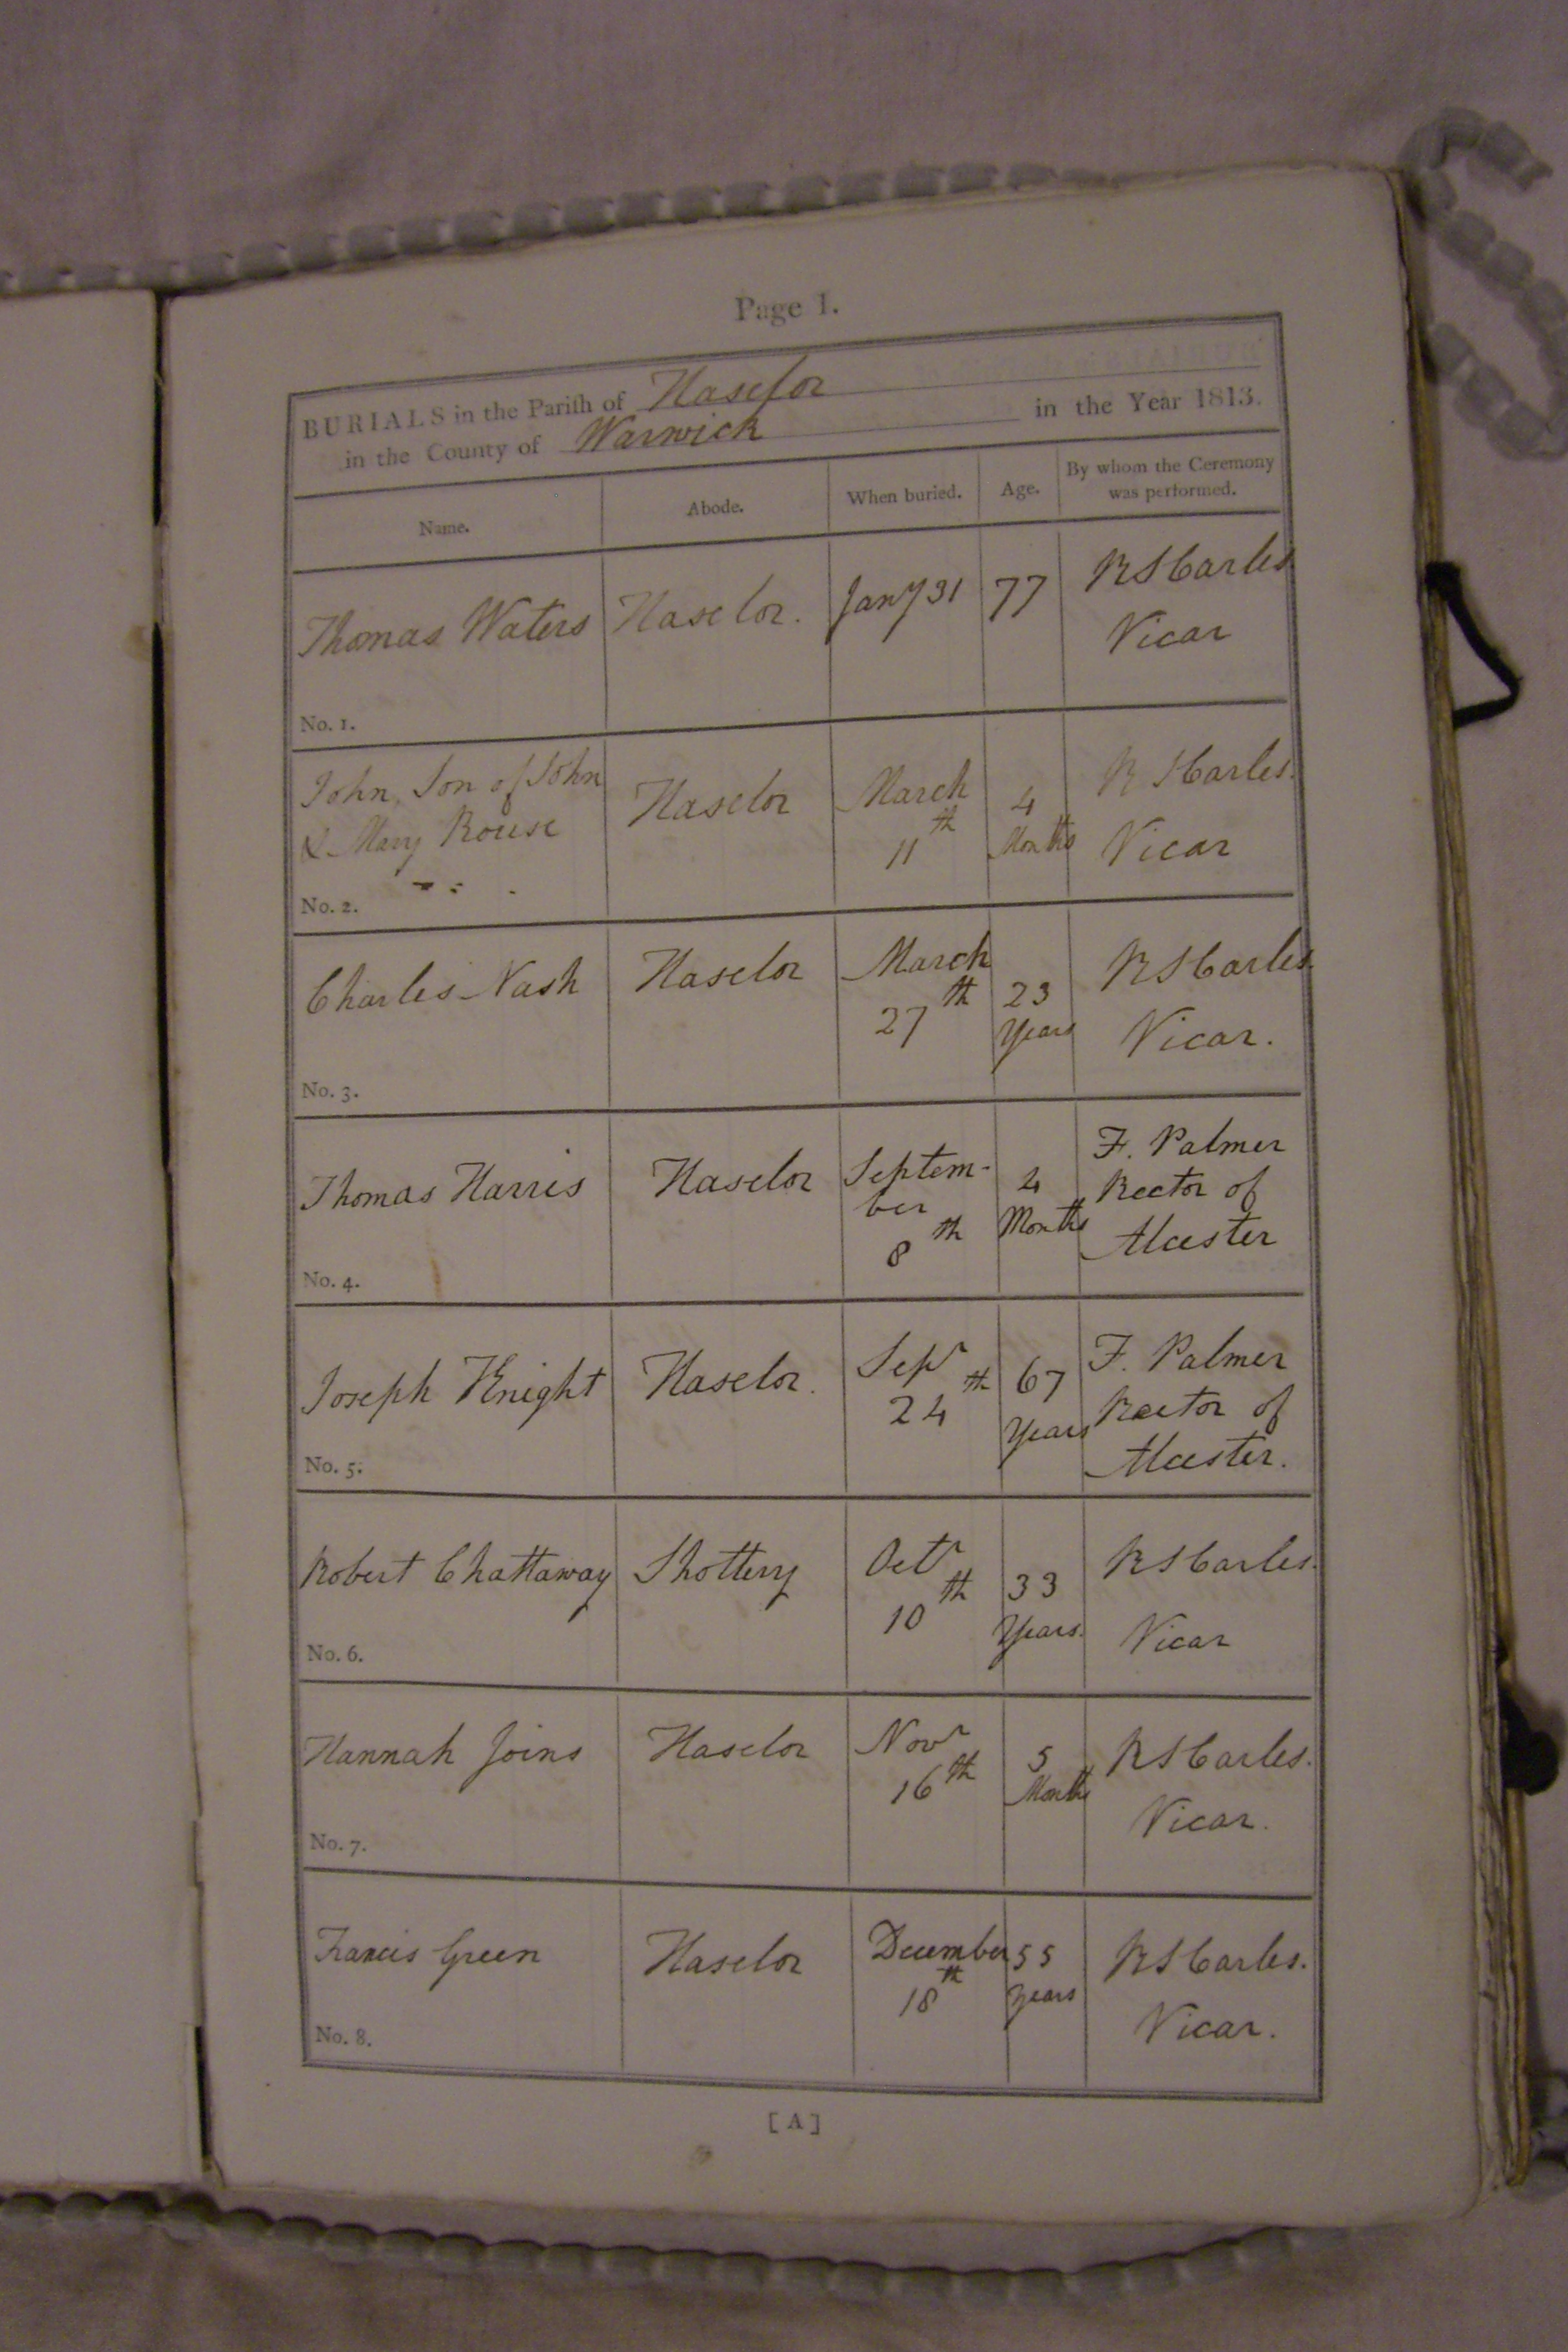 Page 1.
BURIALS in the Parish of Haselor
in the County of Warwick in the Year 1813.
Name. Abode. When buried. Age. By whom the Ceremony was performed.
Thomas Waters Haselor. Jany 31 77 R S Carles
Vicar
No. 1.
John, Son of John
& Mary Rouse
Haselor
March
11th
4
Months
R S Carles.
Vicar
No. 2.
Charles Nash
Haselor
March
27th
23
Years
R S Carles
Vicar.
No. 3.
Thomas Harris
Haselor
Septem-
ber
8th
4
Months
F. Palmer
Rector of
Alcester
No. 4.
Joseph Knight
Haselor.
Sepr
24th
67
Years
F. Palmer
Rector of
Alcester.
No. 5.
Robert Chattaway
Shottery
Octr
10th
33
Years.
R S Carles.
Vicar
No. 6.
Hannah Joins
Haselor
Novr
16th
5
Months
R S Carles.
Vicar.
No. 7.
Francis Green
Haselor
December
18th
55
years
R S Carles.
Vicar.
No. 8.
[A]